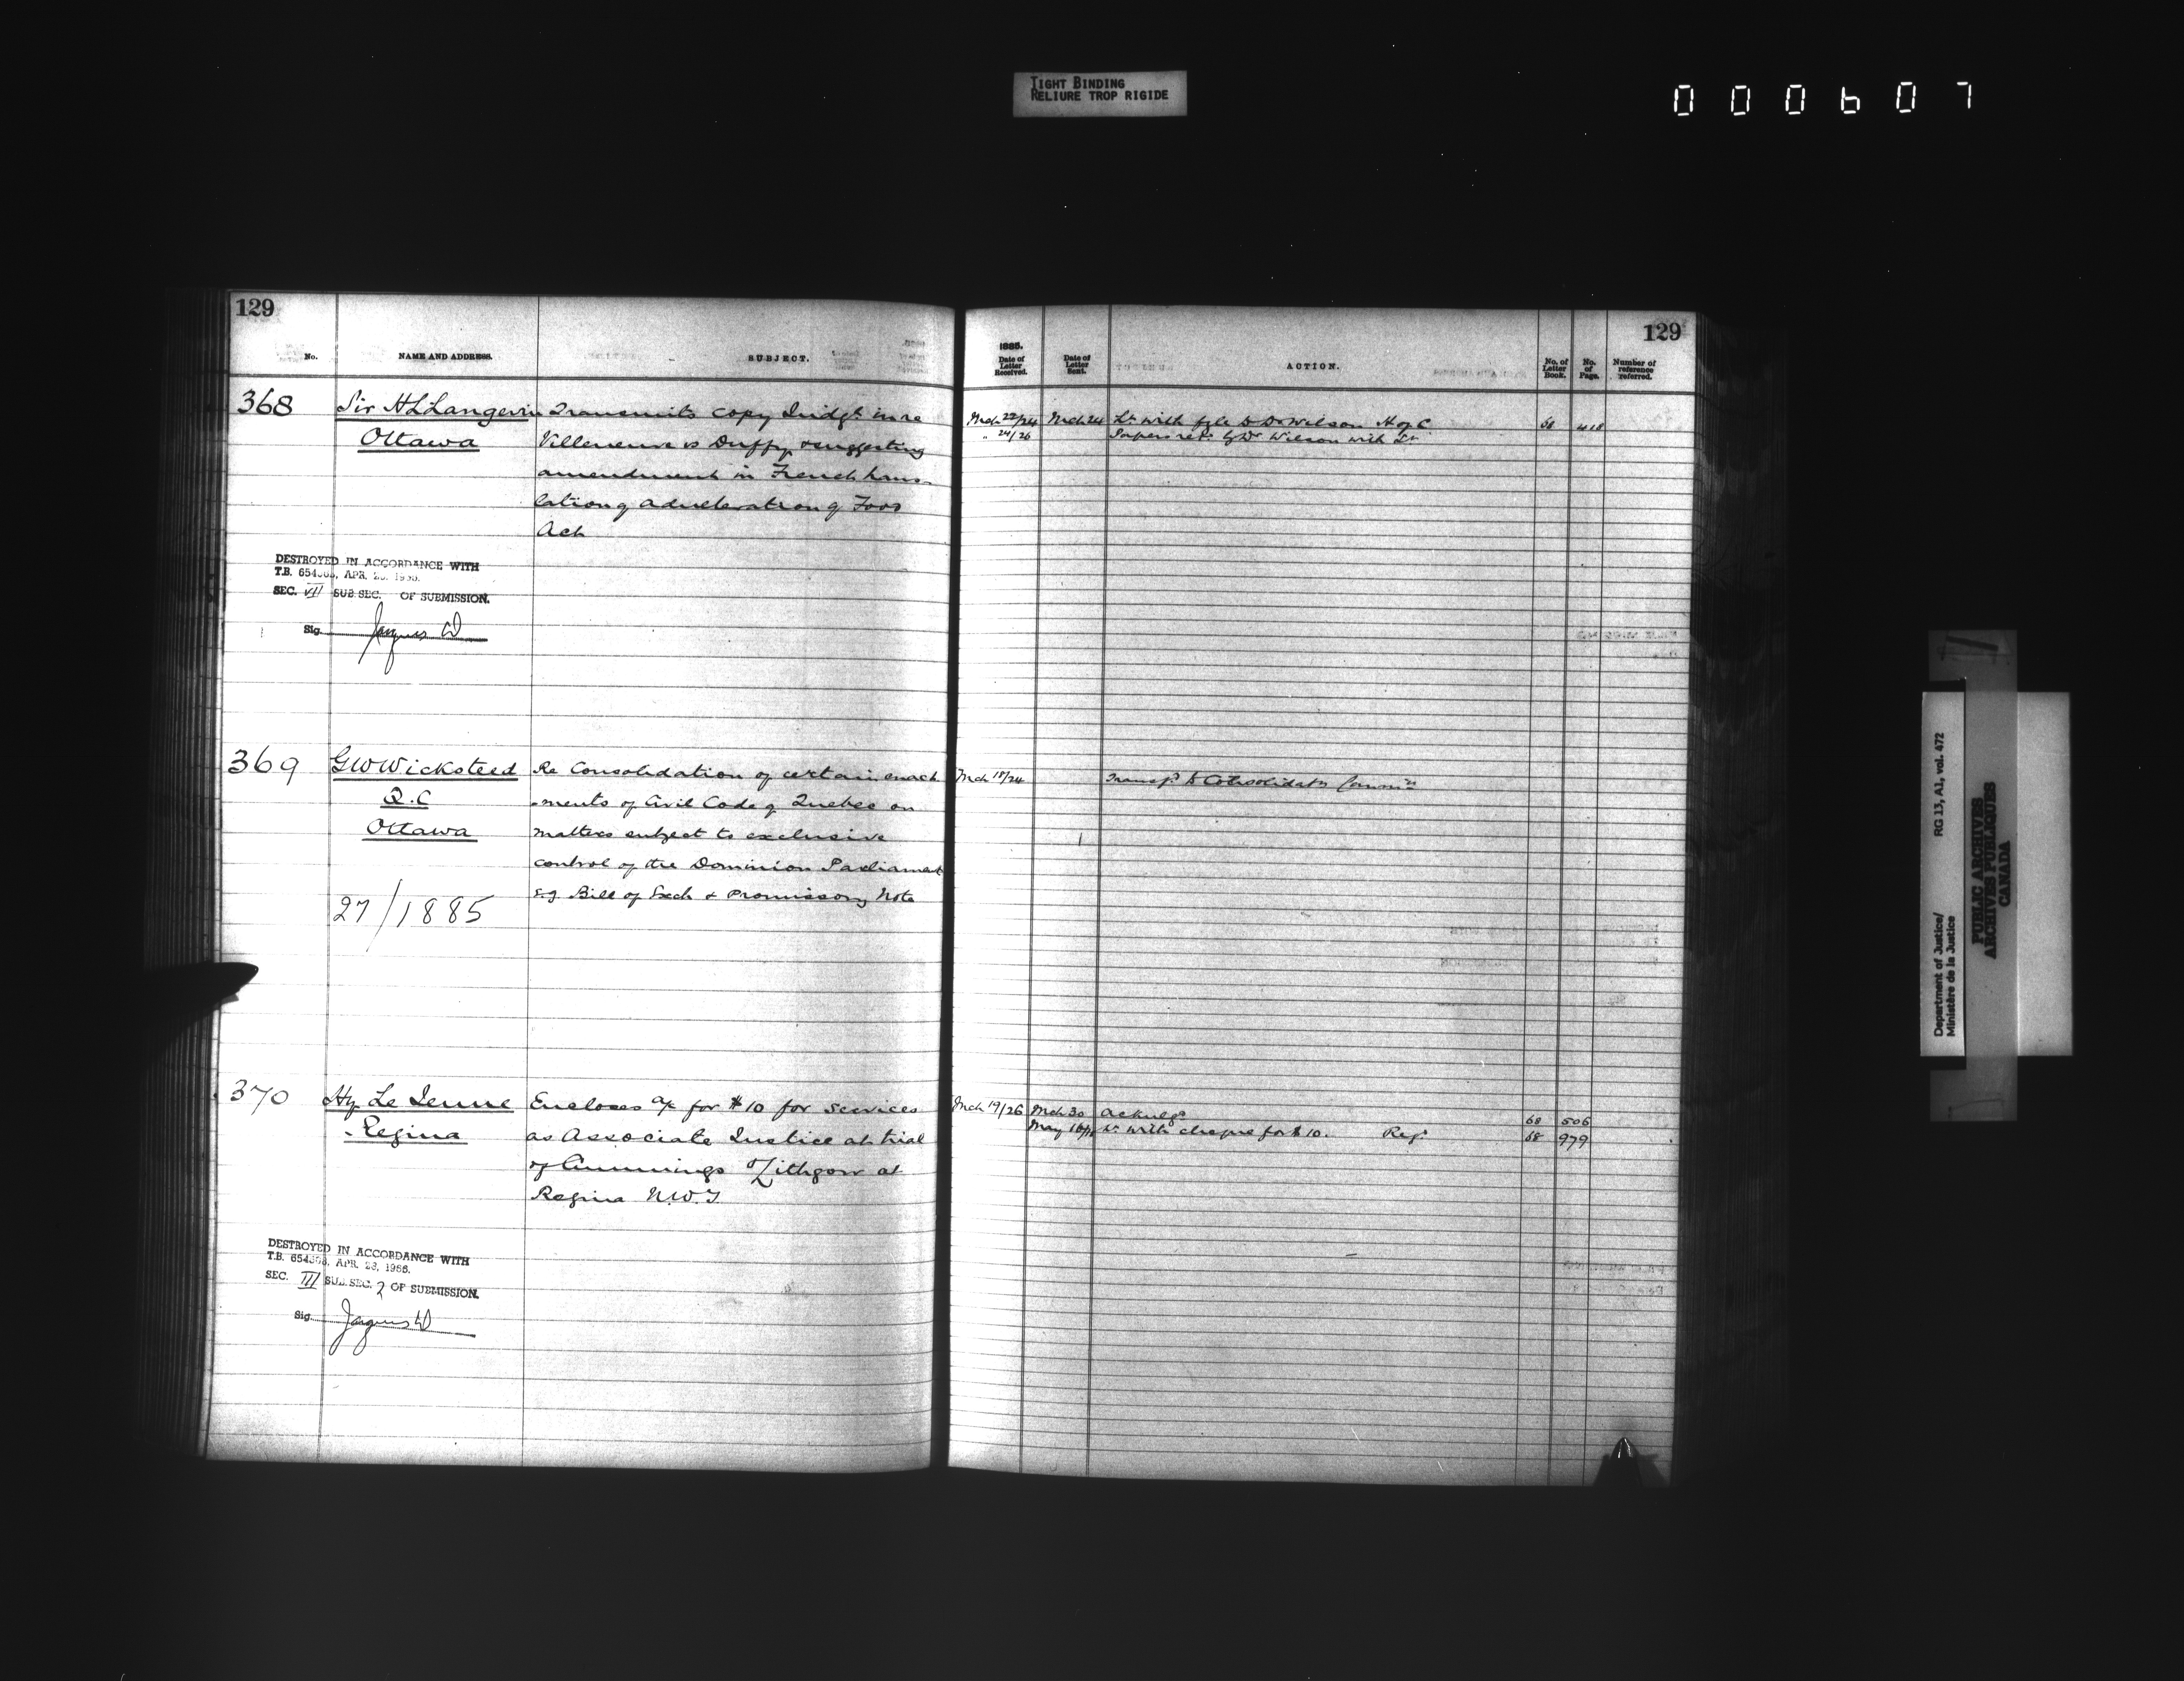 TIGHT BINDING
RELIURE TROP RIGIDE
000607
129
No.
NAME AND ADDRESS.
SUBJECT.
368
Sir H L Langevin
Ottawa
Transmits copy Judgt. in re
Villeneuve vs Duffy & suggesting
amendment in French trans-
lation of Adulteration of Food
Act
DESTROYED IN ACCORDANCE WITH
T.B. 654308, APR. 28, 1966.
SEC. VII SUB SEC. OF SUBMISSION.
Sig.
369
G W Wicksteed
Q.C
Ottawa
27/1885
Re Consolidation of certain enact
-ments of Civil Code of Quebec on
matters subject to exclusive
control of the Dominion Parliament
e.g. Bill of Exch & Promissory Note
370
Hy Le Jeune
Regina
Encloses a/c for $10 for services
as Associate Justice at trial
of Cummings & Lithgow at
Regina N.W.T.
DESTROYED IN ACCORDANCE WITH
T.B. 654308, APR. 28, 1966.
SEC. III SUB. SEC. 2 OF SUBMISSION.
Sig.
129
1885.
Date of Letter Received.
Date of Letter Sent.
ACTION.
No. of Letter Book.
No. of Page.
Number of reference referred.
Mch 22/24 Mch 24 Lr. with fyle to Dr Wilson H of C 68 418
" 24/26 Papers retd. by Dr Wilson with Lr
Mch 18/24 Transfd. to Consolidatn Commn
Mch 19/26 Mch 30 Acknlgd 68 506
May 16 Lr. with cheque for $10. Regd 68 979
Department of Justice/
Ministère de la Justice
RG 13, A1, vol. 472
PUBLIC ARCHIVES
ARCHIVES PUBLIQUES
CANADA